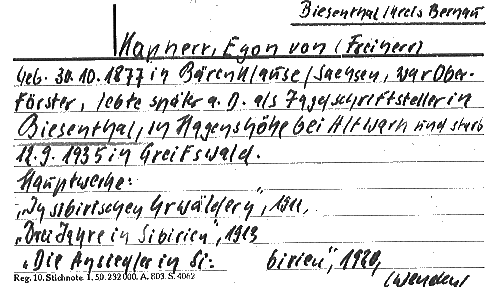 Biesenthal Kreis Bernau
Kapherr, Egon von (Freiherr)
Geb. 30.10.1877 in Bärenklause/Sachsen, war Ober-
förster, lebte später a. D. als Jagdschriftsteller in
Biesenthal, in Hagenshöhe bei Altwarp und starb
12.9.1935 in Greifswald.
Hauptwerke:
„In sibirischen Urwäldern", 1911,
„Drei Jahre in Sibirien", 1913
„Die Ansiedler in Si- birien", 1920,
Reg. 10. Stichnote 1, 50. 232 000. A. 803. S. 4062
(Wenden)